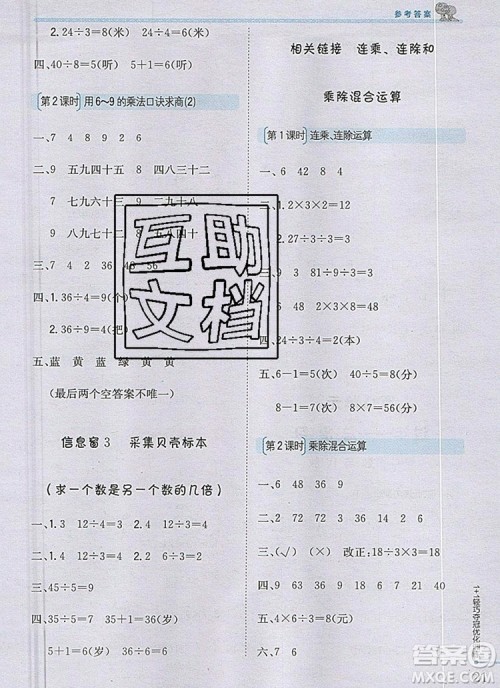 参考答案
2.24÷3=8(米) 24÷6=4(米)
四、40÷8=5(听) 5+1=6(听)
第2课时 用6～9的乘法口诀求商(2)
一、7 4 8 9 2 6
二、9 五九四十五 8 四八三十二
7 七九六十三 9 二九十八
9 八九七十二
三、7
四、1.36÷4=9(
2.36÷9=4(把)
五、蓝 黄 蓝 绿 黄 黄
(最后两个空答案不唯一)
信息窗3 采集贝壳标本
(求一个数是另一个数的几倍)
一、1.3 12÷4=3 2.4 12÷3=4
二、45÷5=9
三、54÷9=6
四、1.35÷7=5
2.36÷6=6
五、1+1=2(岁) 34+2=36(岁)
36÷6=6(岁)
相关链接 连乘、连除和
乘除混合运算
第1课时 连乘、连除运算
一、6 42 8 4
二、1.2×3×2=12
2.27÷3÷3=3
三、7 6 2 1 81 48
四、24÷3÷4=2(本)
五、6-1=5(次) 40÷5=8(分)
8-1=7(次) 8×7=56(分)
第2课时 乘除混合运算
一、6 48 36 9
二、72 8 64 18 24 6 4 8
三、√ × × 改正:18÷3×6=36
四、9 63 4 36 54 9 54 6
五、6÷2=3 3×2=6(元)
六、7 6
互助
文档
1+1轻巧夺冠优化
答案圈
MXQE.COM